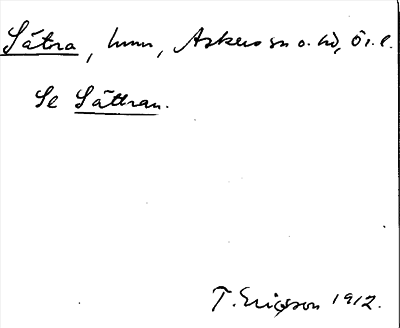 Sätra, hmn, Askers sn o. hd, Ör. l.
Se Sättran.
T. Ericson 1912.